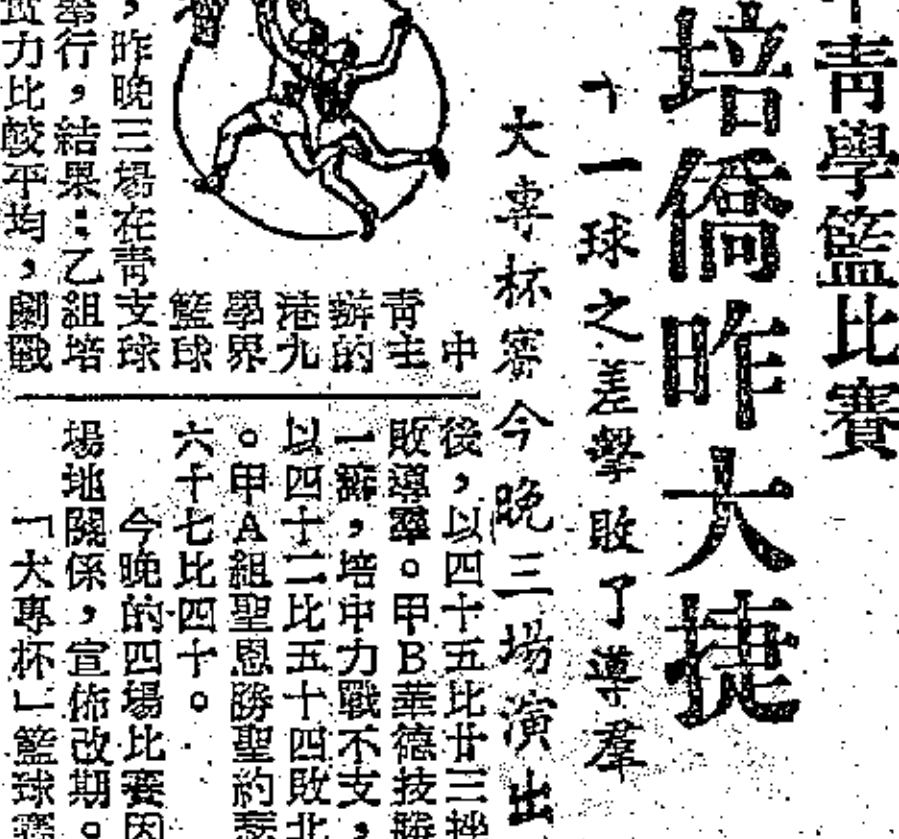 青學籃比賽
培僑昨大捷
十一球之差擊敗了導羣
大專杯賽今晚三場演出
中
青主
辦的
港九
學界
籃球
，昨晚三場在青支球
行，結果：乙組培
力比較平均，劇戰
後，以四十五比廿三挫
敗導羣。甲B華德技勝
一籌，培中力戰不支，
以四十二比五十四敗北
。甲A組聖恩勝聖約
六十七比四十。
今晚的四場比賽因
場地關係，宣佈改期。
「大專杯」籃球賽